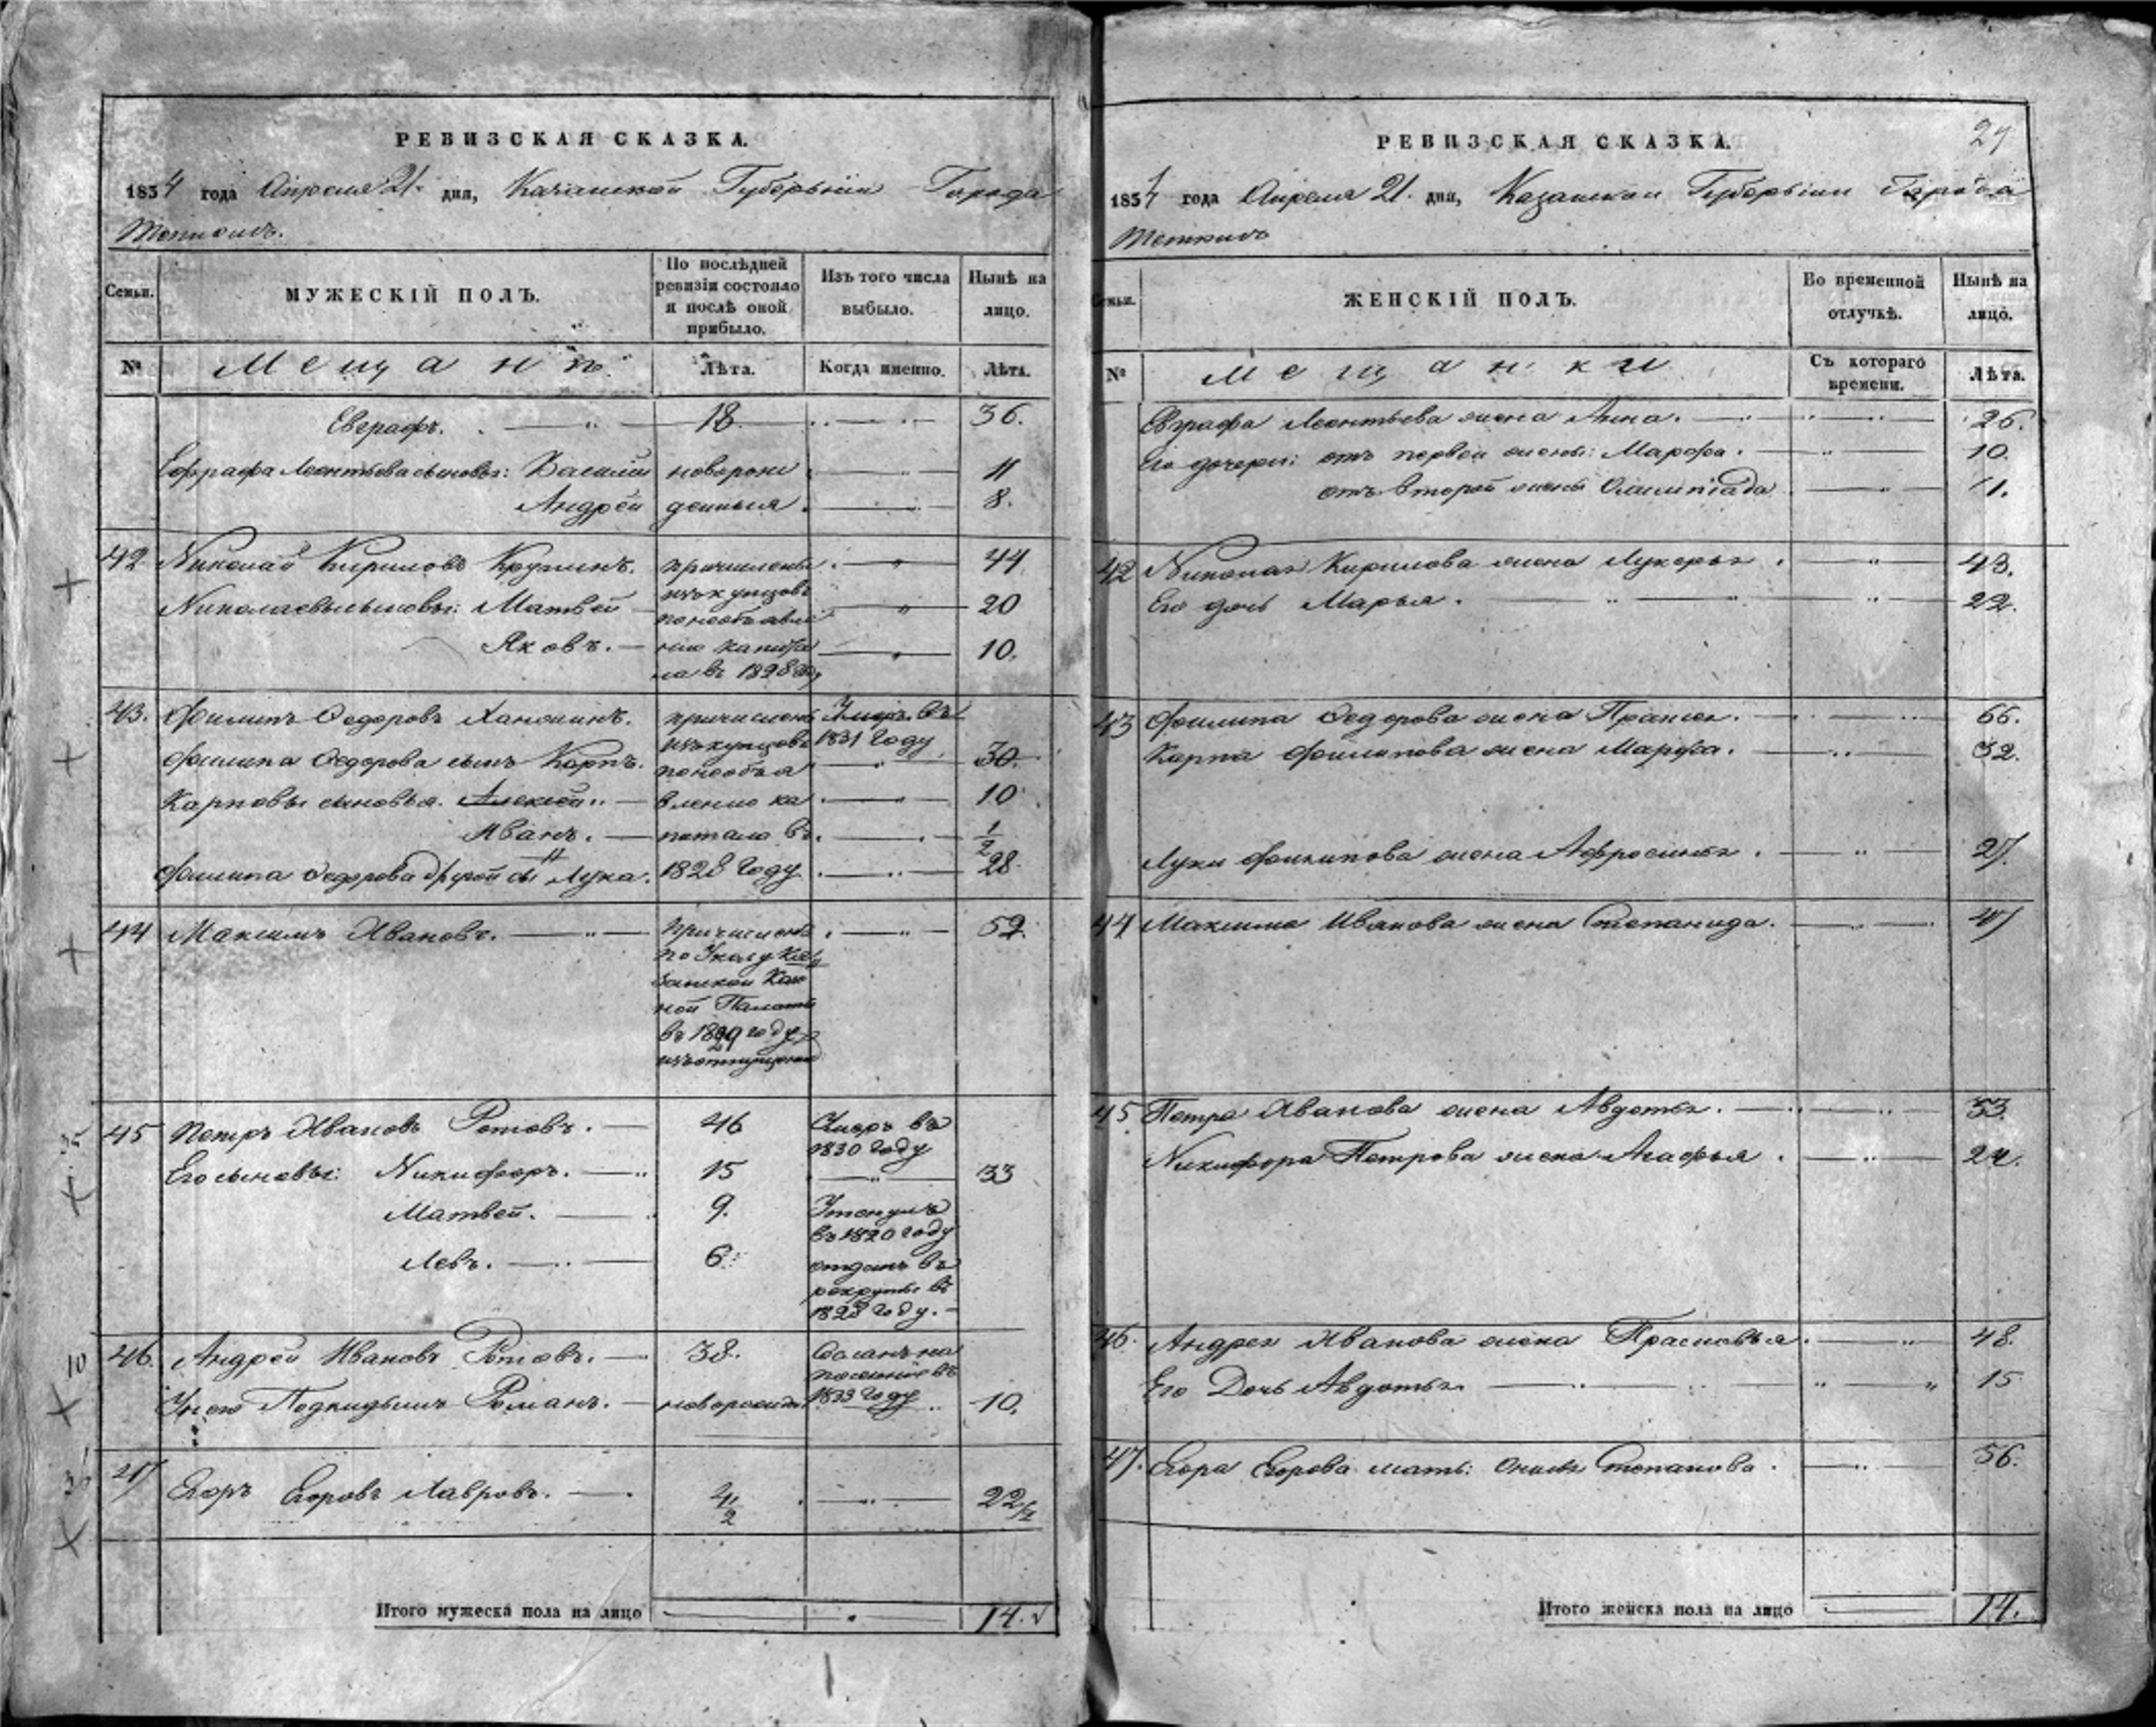 РЕВИЗСКАЯ СКАЗКА.
1834 года Апреля 21. дня, Казанской Губернии Города
Тетюшъ.
Семьи.
МУЖЕСКІЙ ПОЛЪ.
По послѣдней
ревизіи состояло
и послѣ оной
прибыло.
Изъ того числа
выбыло.
Нынѣ на
лицо.
№
Мещанъ
Лѣта.
Когда именно.
Лѣта.
Евграфъ. 18. 36.
Евграфа Леонтьева сыновья: Василий новорож 11
Андрей денныя 8.
42 Николай Кирилов причислены 44
изъ купцовъ
Николаевы сыновья: Матвей 20
по необъявле
Яковъ. нию капита 10.
ла въ 1828 году
43. Филипъ Федоровъ причислены Умеръ въ
изъ купцовъ 1831 году
Филипа Федорова сынъ Карпъ. по необъя 30.
Карповы сыновья. Алексей влению ка 10
Иванъ. питала въ 1/2
Филипа Федорова другой сынъ Лука. 1828 году 28
44 Максимъ Ивановъ. Причисленъ 52.
по Указу Ка
занской Казен
ной Палаты
въ 1829 году
45 Петръ Ивановъ Ротовъ. 46 Умеръ въ
1830 году
Его сыновья: Никифоръ. 15 33
Матвей. 9. Утонулъ
въ 1820 году
Левъ. 6 отданъ въ
рекруты въ
1828 году.
46. Андрей Ивановъ Ротовъ. 38. Сосланъ на
поселение въ
1833 году
У него Подкидышъ Романъ. новорожден 10.
47 Егоръ Егоровъ Лавровъ. 4 1/2 22 1/2
Итого мужеска пола на лицо 14.
29
РЕВИЗСКАЯ СКАЗКА.
1834 года Апреля 21. дня, Казанской Губернии Города
Тетюшъ
Семьи.
ЖЕНСКІЙ ПОЛЪ.
Во временной
отлучкѣ.
Нынѣ на
лицо.
№
Мещанки
Съ котораго
времени.
Лѣта.
Евграфа Леонтьева жена Анна. 26.
Его дочери: отъ первой жены: Марфа. 10.
отъ второй жены Олимпіада 1.
42 Николая Кирилова жена Лукерья 43.
Его дочь Марья. 22.
43 Филипа Федорова жена 66.
Карпа Филипова жена Марфа. 32.
Луки Филипова жена Афросинья. 27.
44 Максима Иванова жена Степанида. 47
45 Петра Иванова жена Авдотья. 53.
Никифора Петрова жена Агафья. 24.
46. Андрея Иванова жена Прасковья. 48.
Его Дочь Авдотья 15
47. Егора Егорова мать: Степанова. 56.
Итого женска пола на лицо 14.